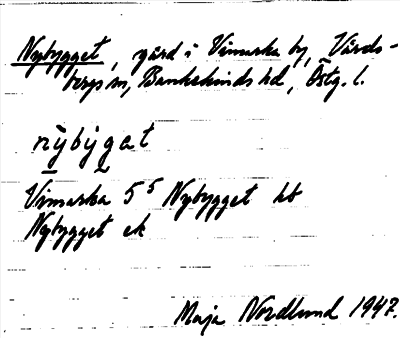 Nybygget, gård i Vimarka by, Vårds-
bergs sn, Bankekinds hd, Östg. l.
nỳbýgat
Vimarka 5⁵ Nybygget hb
Nybygget ek
Maja Nordlund 1947.